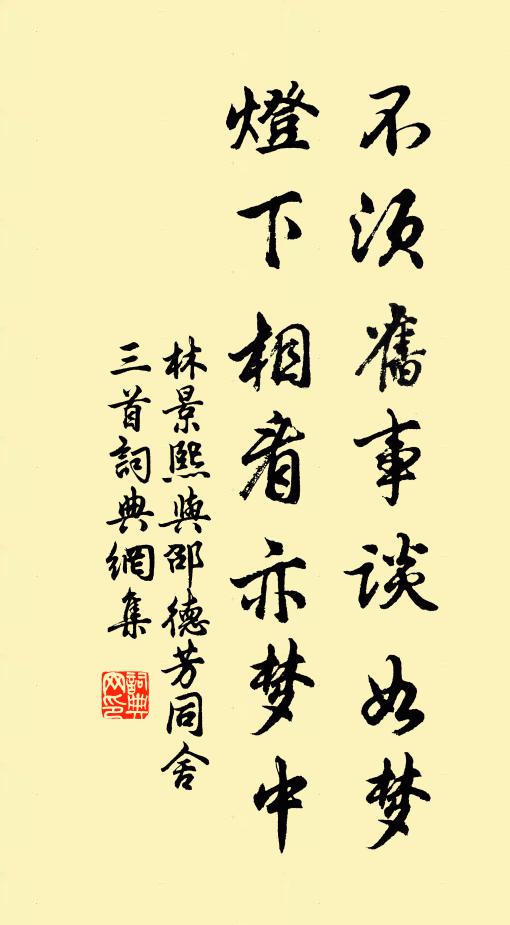 不須舊事談如梦
燈下相看亦梦中
林景熙與邵德芳同舍
三首詞典網集
詞典
网印